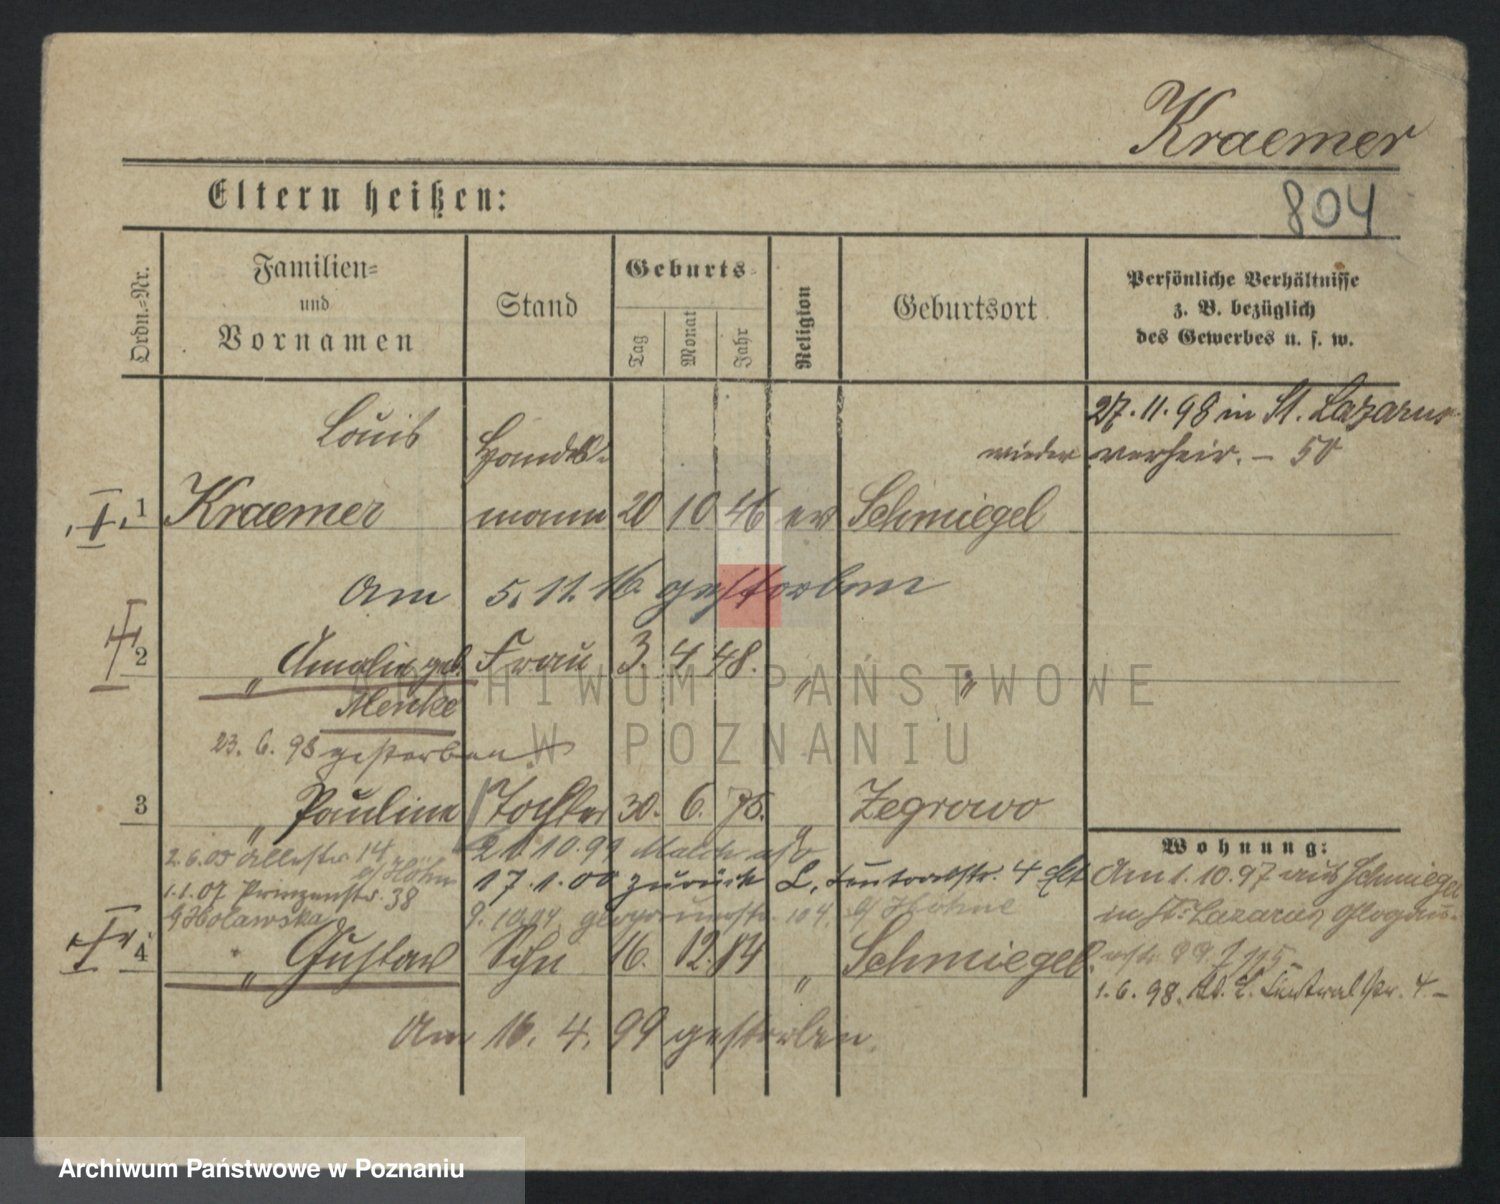 Kraemer
804
Eltern heißen:
Ordn.=Nr.
Familien=
und
Vornamen
Stand
Geburts=
Tag
Monat
Jahr
Religion
Geburtsort
Persönliche Verhältnisse
z. B. bezüglich
des Gewerbes u. s. w.
27.11.98 in St. Lazarus
wieder verheir. – 50
Louis Handels-
1 Kraemer mann 20 10 46 ev Schmiegel
Am 5. 11. 16. gestorben
2 " Amalie geb. Frau 3. 4 48. " "
Menke
23. 6. 98 gestorben.
3 " Pauline Tochter 30. 6. 75. " Zegrowo
2.6.05 14
21.10.99
17.1.00 zurück L. Centralstr. 4
1.1.07 Prinzenstr. 38
104
4 " Gustav Sohn 16. 12. 84 " Schmiegel
Am 16. 4. 99 gestorben.
Wohnung:
Am 1.10.97 aus Schmiegel
in St. Lazarus, Glogau-
1.6.98. L. Centralstr. 4 –
ARCHIWUM PAŃSTWOWE
W POZNANIU
Archiwum Państwowe w Poznaniu